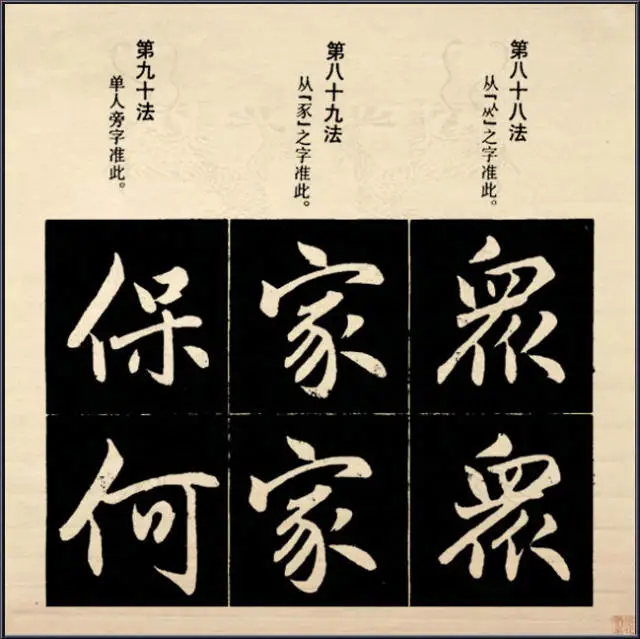 第八十八法
从「㐺」之字准此。
第八十九法
从「豕」之字准此。
第九十法
单人旁字准此。
眾
眾
家
家
保
何